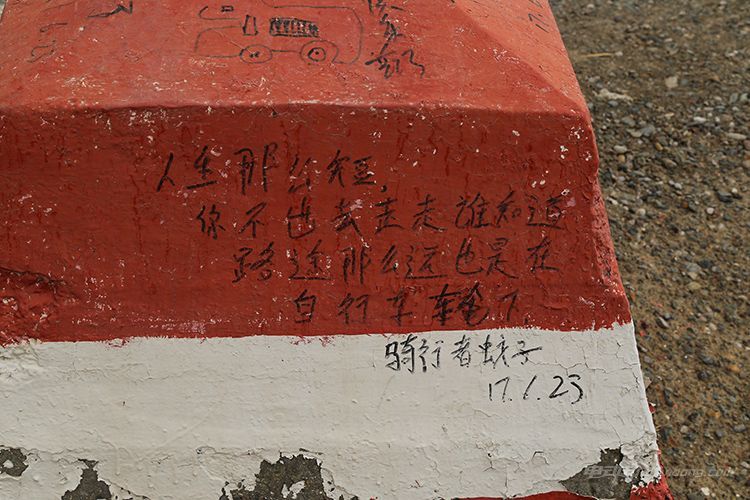 人生那么短,
你不出去走走谁知道
路途那么远也是在
自行车车轮下.
骑行者蚊子
17.1.23